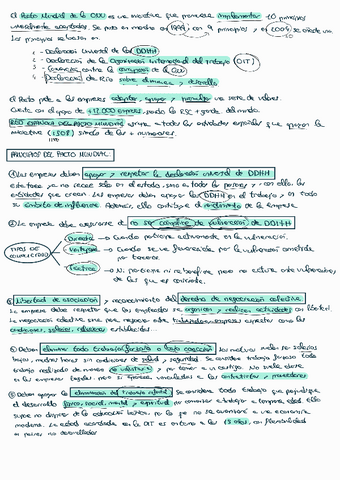 El Pacto Mundial de la ONU es una iniciativa que promueve implementar 10 principios
universalmente aceptados. Se puso en marcha en 1999 con 9 principios, y en 2004 se
Los principios se basan en:
- Declaración Universal de los DDHH
- Declaración de la Organización Internacional del Trabajo (OIT)
- Convención contra la corrupción de la ONU
- Declaración de Río sobre ambiente y desarrollo
El Pacto pide a las empresas adoptar, apoyar y promulgar una serie de valores.
Cuenta con el apoyo de +12.000 empresas, siendo la RSC + grande del mundo.
RED ESPAÑOLA DEL PACTO MUNDIAL: a todas las entidades españolas que apoyan la
iniciativa siendo de las + numerosas.
PRINCIPIOS DEL PACTO MUNDIAL
① Las empresas deben apoyar y respetar la declaración universal de DDHH
esta tarea ya no recae solo en el estado, sino a todas las partes y con ello, las
entidades que crean. Las empresas deben apoyar los DDHH en el trabajo, en todo
su ámbito de influencia. Además, ello contribuye al rendimiento de la empresa.
② La empresa debe asegurarse de no ser cómplice de vulneración de DDHH
TIPOS DE COMPLICIDAD
Directa → Cuando participa activamente en la vulneración.
→ Cuando se ve favorecida por la vulneración cometida
por terceros.
→ Ni participa ni se beneficia, pero no actúa ante vulneraciones
de las que es consciente.
③ Libertad de asociación y reconocimiento del derecho de negociación colectiva
La empresa debe respetar que los empleados se organicen y realicen actividades con libertad.
La negociación colectiva sirve para negociar entre trabajadores-empresa aspectos como las
condiciones, salarios, relaciones establecidas...
④ Deben eliminar todo trabajo forzoso o bajo coacción. Los motivos suelen ser salarios
bajos, muchas horas sin condiciones de salud y seguridad. Se considera trabajo forzoso todo
trabajo realizado de manera no voluntaria y por temor a un castigo. No suele darse
en las empresas legales, pero si aparece vinculadas a los contratistas y proveedores
⑤ Deben apoyar la eliminación del trabajo infantil. Se considera todo trabajo que perjudique
el desarrollo físico, social, mental y espiritual por comenzar a trabajar a temprana edad. Ello
supone no disponer de la educación básica, por lo que no se aventura a una economía
moderna. La edad acordada en la OIT es inferior a los 15 años, con flexibilidad
en países no desarrollados